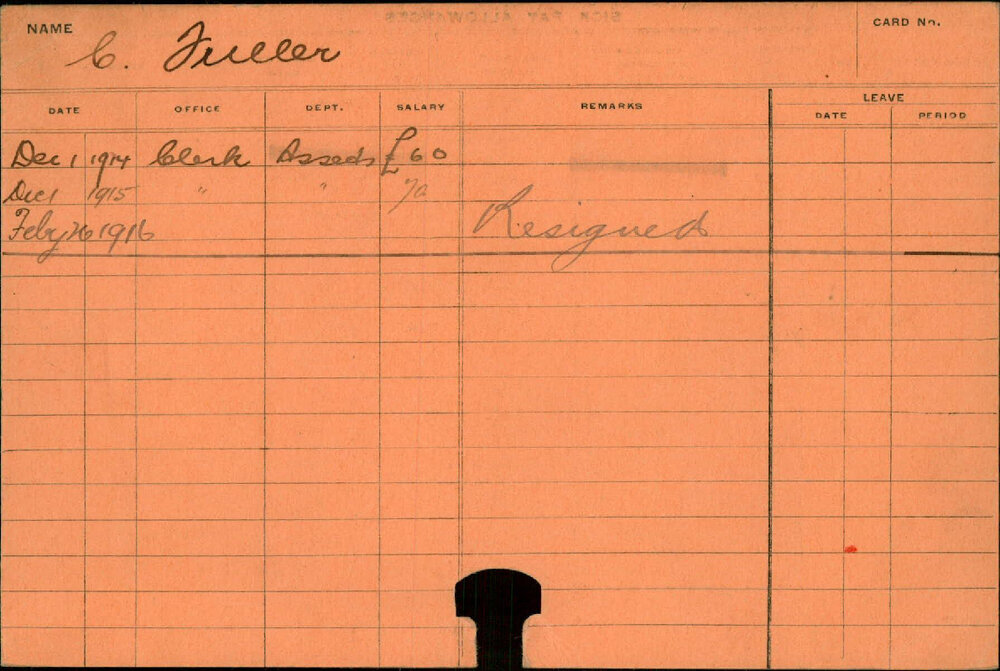 NAME C. Fuller CARD No.
DATE OFFICE DEPT. SALARY REMARKS LEAVE
DATE PERIOD
Dec 1 1914 Clerk £60
Dec 1 1915 " " 70
Feby 26 1916 Resigned